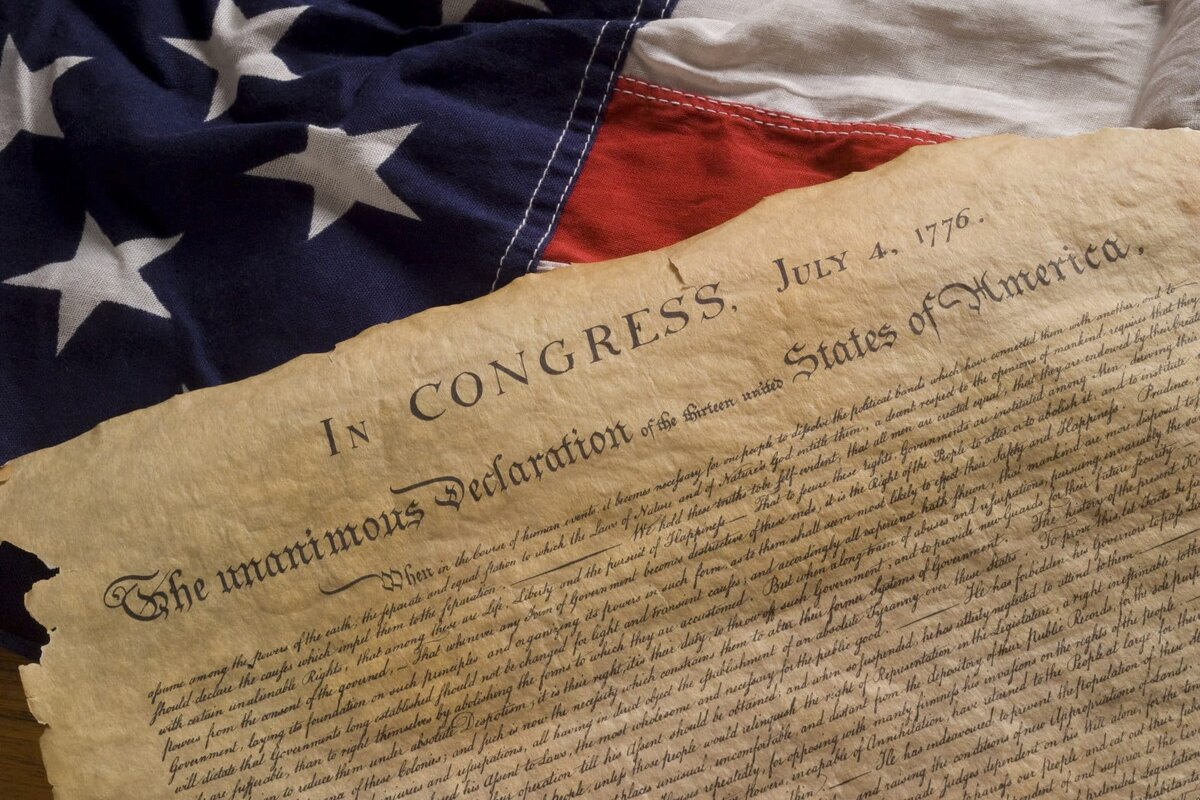 In CONGRESS, July 4, 1776.
The unanimous Declaration of the thirteen united States of America.
When in the Course of human events, it becomes necessary for one people to dissolve the political bands which have connected them with another, and to
assume among the powers of the earth, the separate and equal station to which the Laws of Nature and of Nature's God entitle them, a decent respect to the opinions of mankind requires that they
should declare the causes which impel them to the separation. — We hold these truths to be self-evident, that all men are created equal, that they are endowed by their Creator
with certain unalienable Rights, that among these are Life, Liberty and the pursuit of Happiness.— That to secure these rights, Governments are instituted among Men, deriving their
powers from the consent of the governed,— That whenever any Form of Government becomes destructive of these ends, it is the Right of the People to alter or to abolish it, and to institute
Government, laying its foundation on such principles and organizing its powers in such form, as to them shall seem most likely to effect their Safety and Happiness. Prudence
will dictate that Governments long established should not be changed for light and transient causes; and accordingly all experience hath shewn, that mankind are more disposed to
are sufferable, than to right themselves by abolishing the forms to which they are accustomed. But when a long train of abuses and usurpations, pursuing invariably the
to reduce them under absolute Despotism, it is their right, it is their duty, to throw off such Government, and to provide new Guards for their future security.
of these Colonies; and such is now the necessity which constrains them to alter their former Systems of Government. The history of the present
injuries and usurpations, all having in direct object the establishment of an absolute Tyranny over these States. To prove this let
his Assent to Laws, the most wholesome and necessary for the public good. He has forbidden his Governors to pass
operation till his Assent should be obtained; and when so suspended, he has utterly neglected to attend to them.
people, unless those people would relinquish the right of Representation in the Legislature, a right inestimable
places unusual, uncomfortable, and distant from the depository of their Public Records, for the sole
Houses repeatedly, for opposing with manly firmness his invasions on the rights of the people.
powers, incapable of Annihilation, have returned to the People at large for
He has endeavoured to prevent the population of these
and raising the conditions of new Appropriations of Lands
made Judges dependent on his Will alone, for the
harass our people and eat out their
of and superior to the